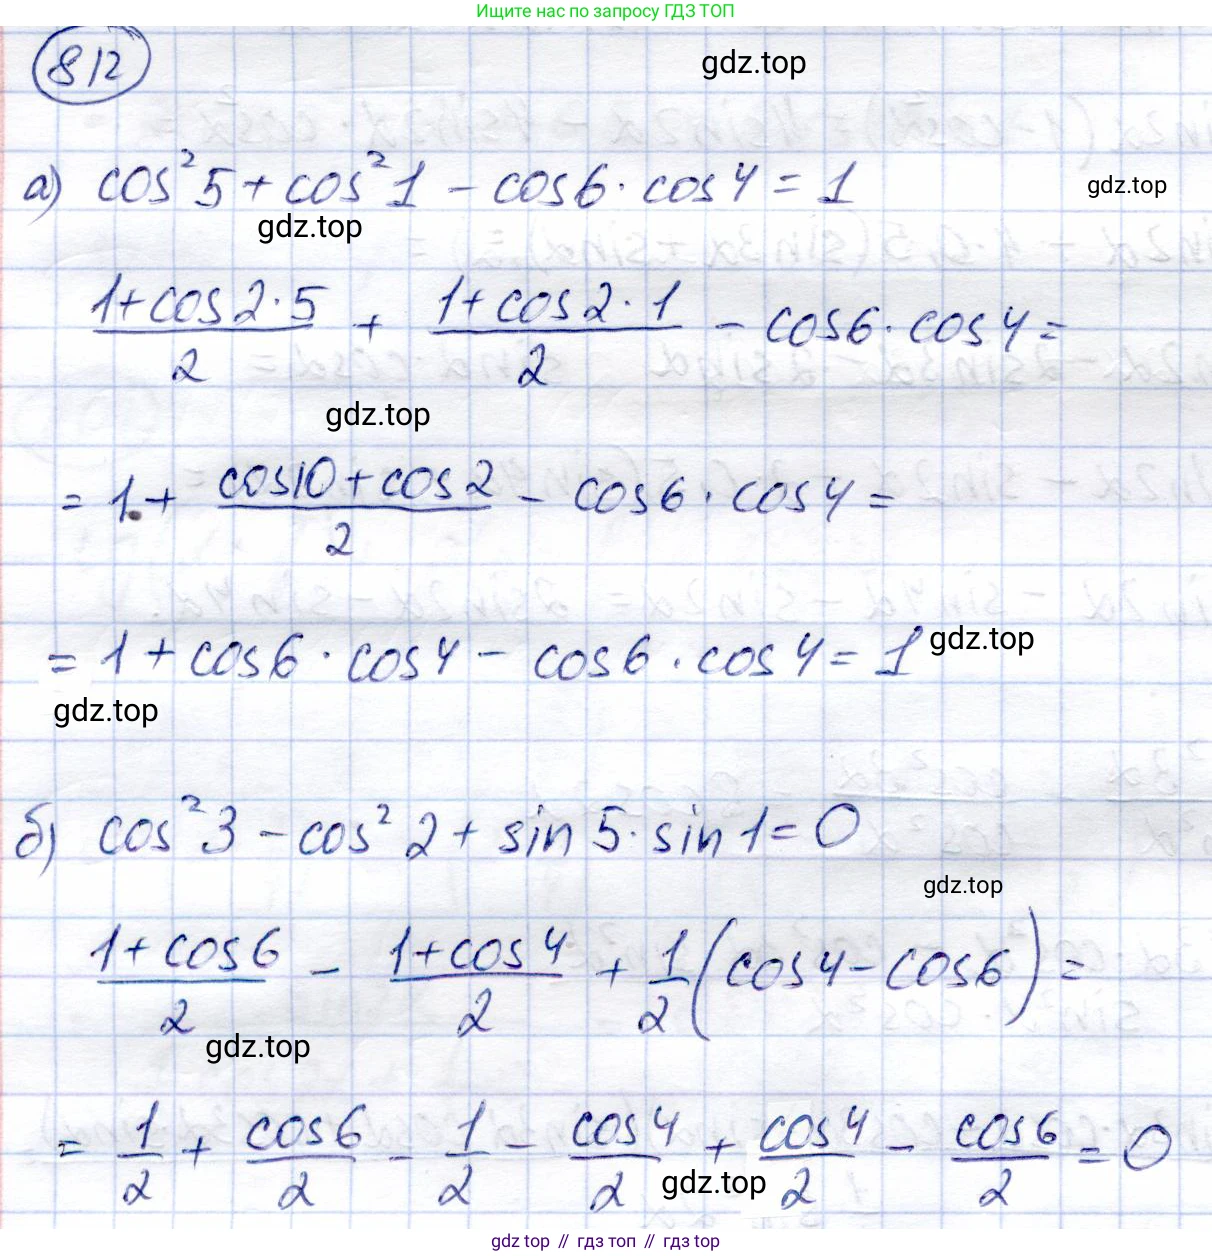 Ищите нас по запросу ГДЗ ТОП
812
gdz.top
а) cos²5 + cos²1 - cos6 · cos4 = 1
gdz.top
gdz.top
(1+cos2·5)/2 + (1+cos2·1)/2 - cos6 · cos4 =
gdz.top
= 1 + (cos10 + cos2)/2 - cos6 · cos4 =
= 1 + cos6 · cos4 - cos6 · cos4 = 1
gdz.top
gdz.top
б) cos²3 - cos²2 + sin5 · sin1 = 0
gdz.top
(1+cos6)/2 - (1+cos4)/2 + 1/2 (cos4 - cos6) =
gdz.top
= 1/2 + cos6/2 - 1/2 - cos4/2 + cos4/2 - cos6/2 = 0
gdz.top
gdz top // гдз топ // гдз top